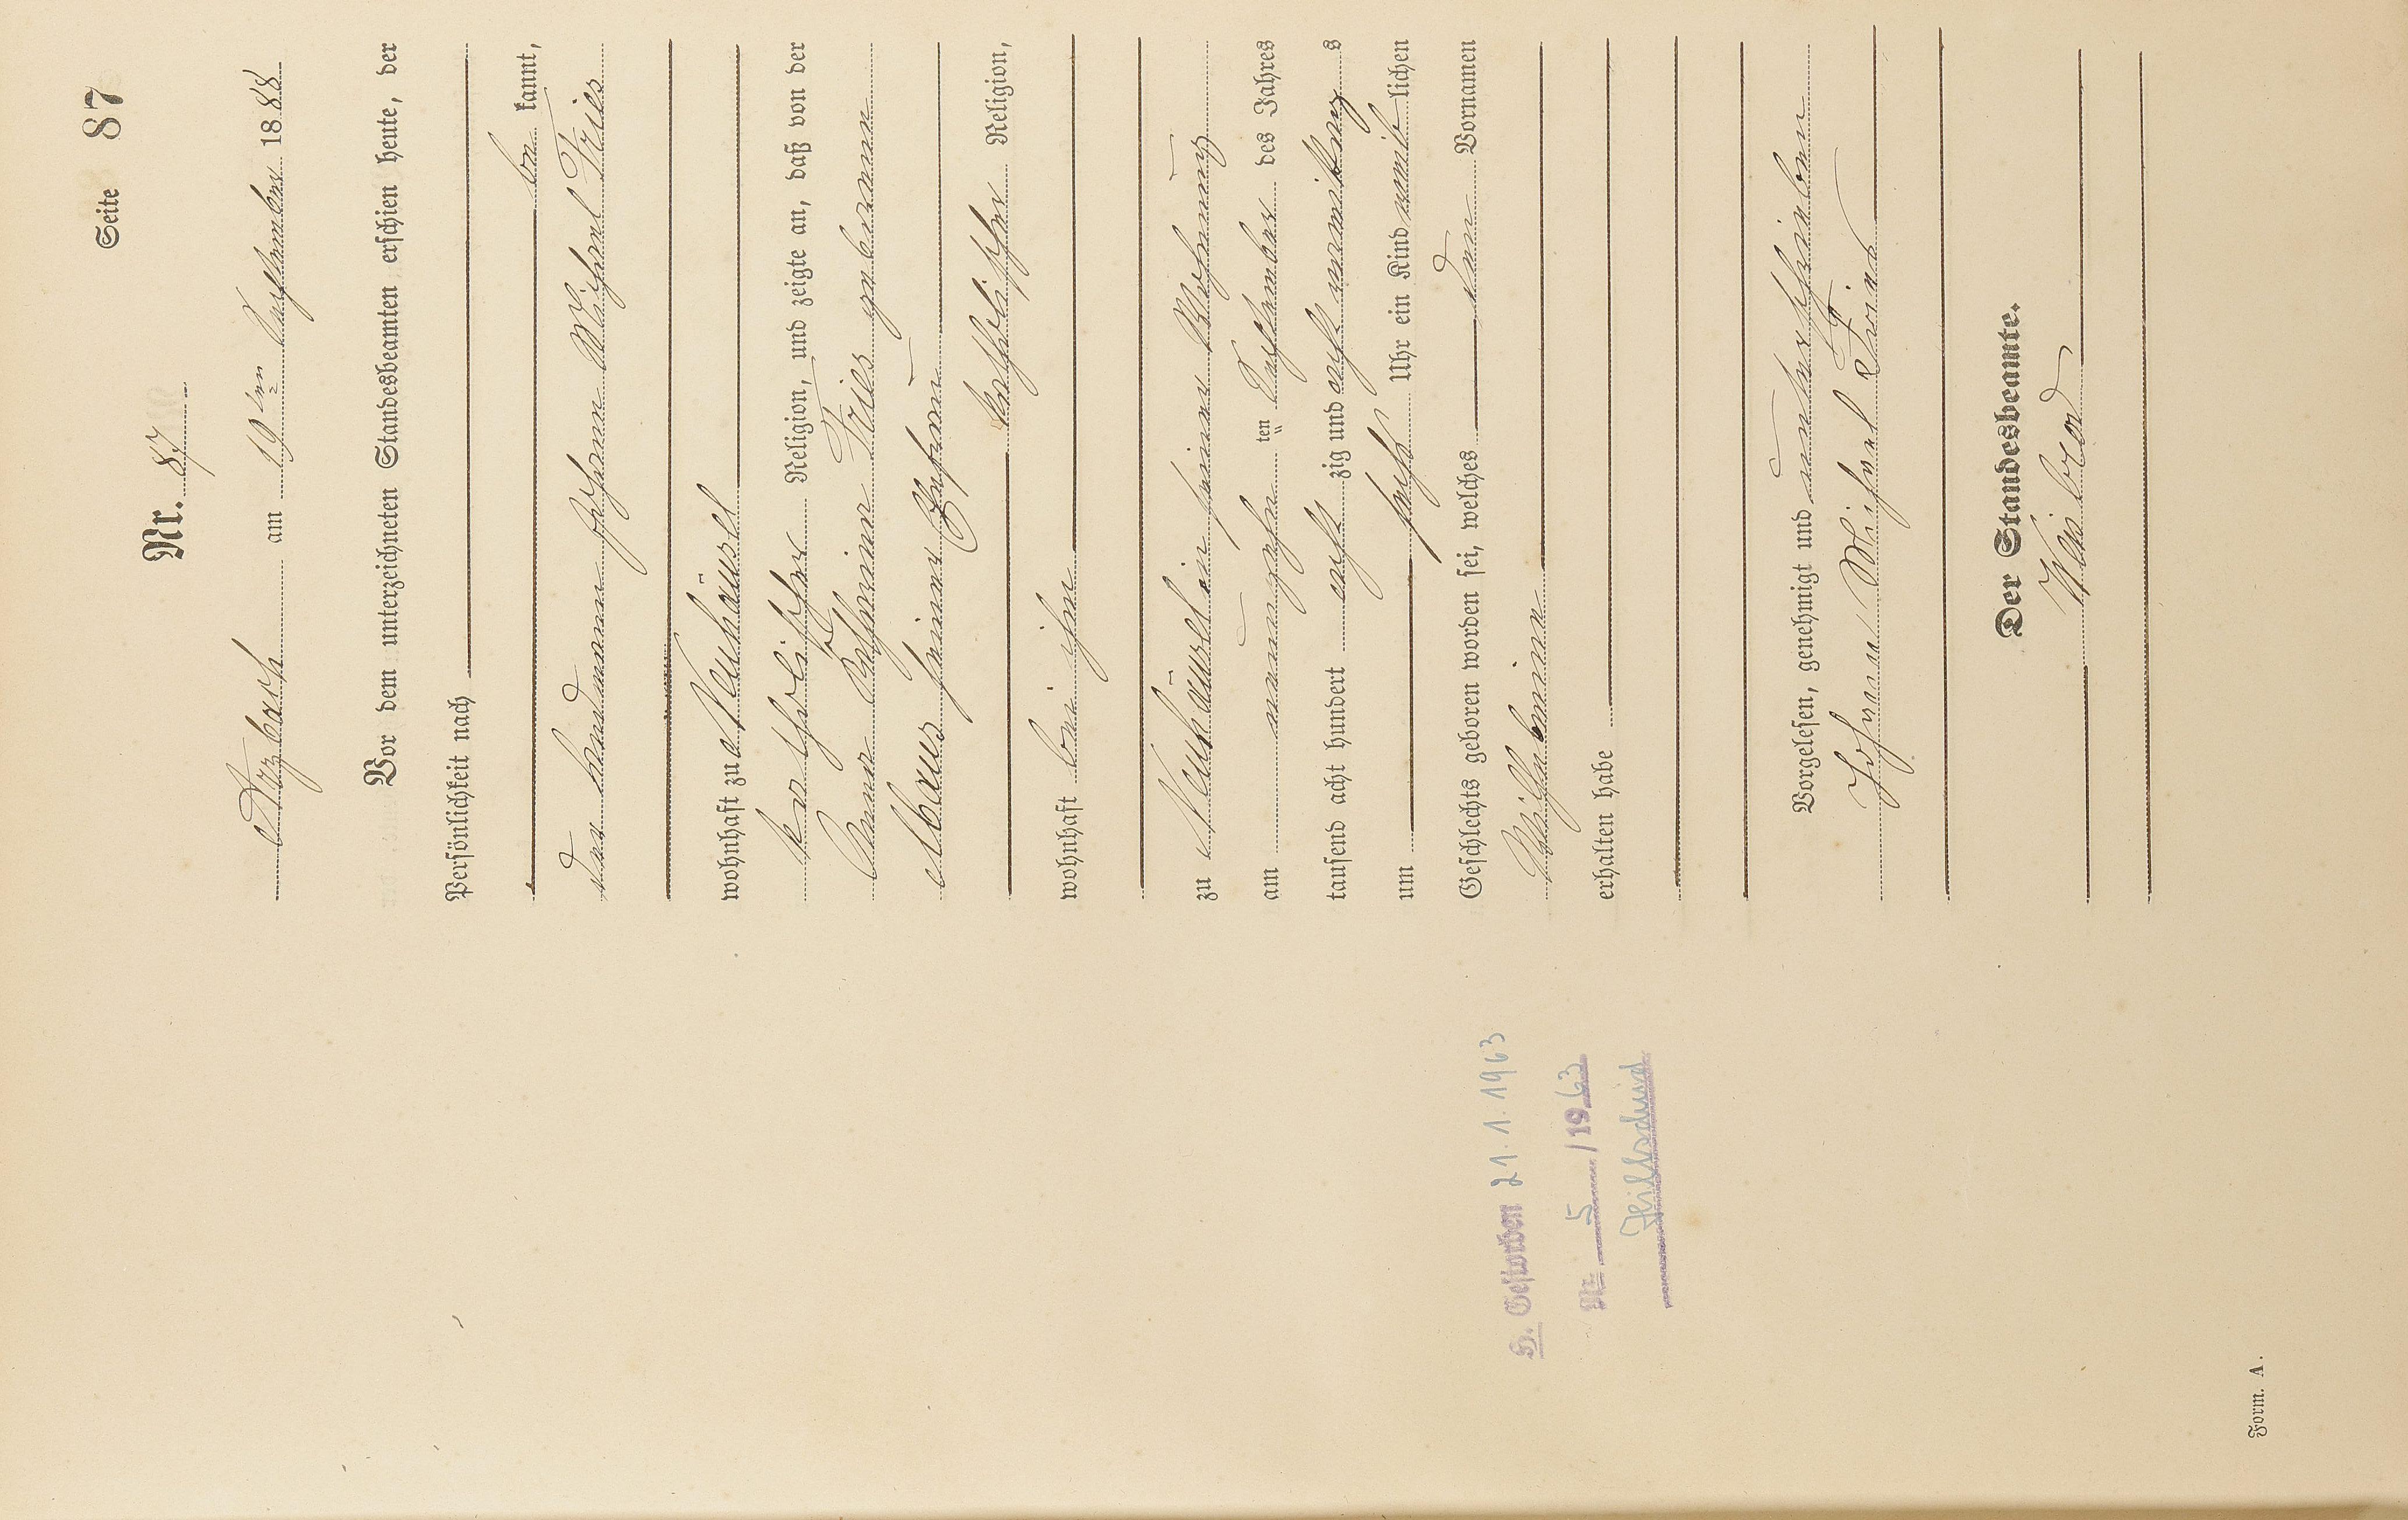 Seite 87
Nr. 87
Arzbach am 19ten September 1888
Vor dem unterzeichneten Standesbeamten erschien heute, der
Persönlichkeit nach
be kannt,
der Landmann Johann Michael Fries
wohnhaft zu Neuhäusel
katholischer Religion, und zeigte an, daß von der
Anna Katharina Fries geborenen
Maus seiner Ehefrau
katholischer Religion,
wohnhaft bei ihm
zu Neuhäusel in seiner Wohnung
am neunzehn ten September des Jahres
tausend acht hundert acht zig und acht vormittag s
um sechs Uhr ein Kind weib lichen
Geschlechts geboren worden sei, welches den Vornamen
Wilhelmina
erhalten habe
Vorgelesen, genehmigt und unterschrieben
Johann Michael Fries
Der Standesbeamte.
H. Gestorben 21.1.1963
Nr. 5 / 1963
Form. A.